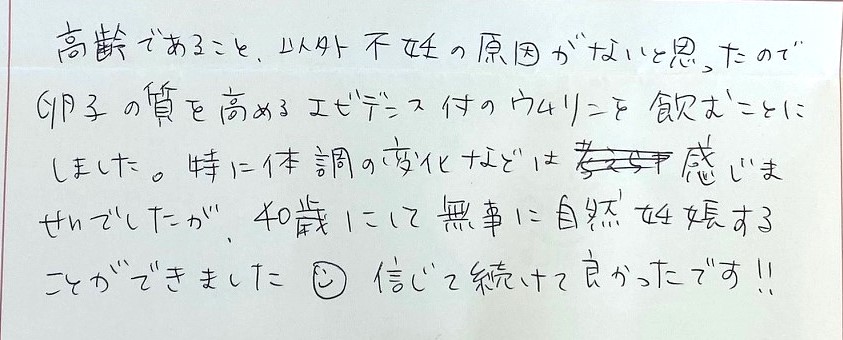 高齢であること、以外不妊の原因がないと思ったので
卵子の質を高めるエビデンス付のウムリンを飲むことに
しました。特に体調の変化などは感じま
せんでしたが、40歳にして無事に自然妊娠する
ことができました☺信じて続けて良かったです!!